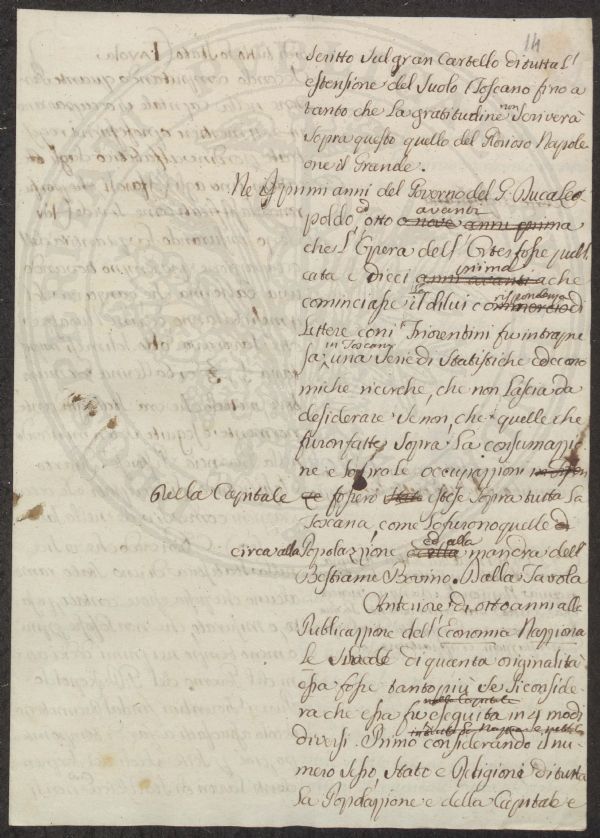 14
scritto sul gran Cartello di tutta l'
estensione del Suolo Toscano fino a
tanto che la gratitudine non scriverà
sopra questo quello del Glorioso Napole
one il Grande.
Ne' primi anni del Governo del G. Duca Leo
poldo ed otto o nove anni prima avanti
che l'Opera dell' Ortes fosse pubbli
cata e dieci anni avanti prima che
cominciasse il di lui commercio rispondenza di
Lettere con i Fiorentini fu intrapre
sa in Toscana una Serie di Statistiche ed econo
miche ricerche, che non lascia da
desiderare se non, che quelle che
furon fatte sopra la consumazio
ne e sopra le occupazioni
della Capitale fossero state estese sopra tutta la
Toscana come lo furono quelle di
circa alla Popolazione ed alla mandra dell'
Bestiame Bovino. Dalla Tavola
Anteriore di otto anni alla
Pubblicazione dell' Economia Naziona
le si vede di quanta originalità
essa fosse tanto più se si conside
ra che essa fu eseguita nella Capitale in 4 modi
diversi. Primo considerando il nu
mero sesso, stato e Religione di tutta
la Popolazione e della Capitale e